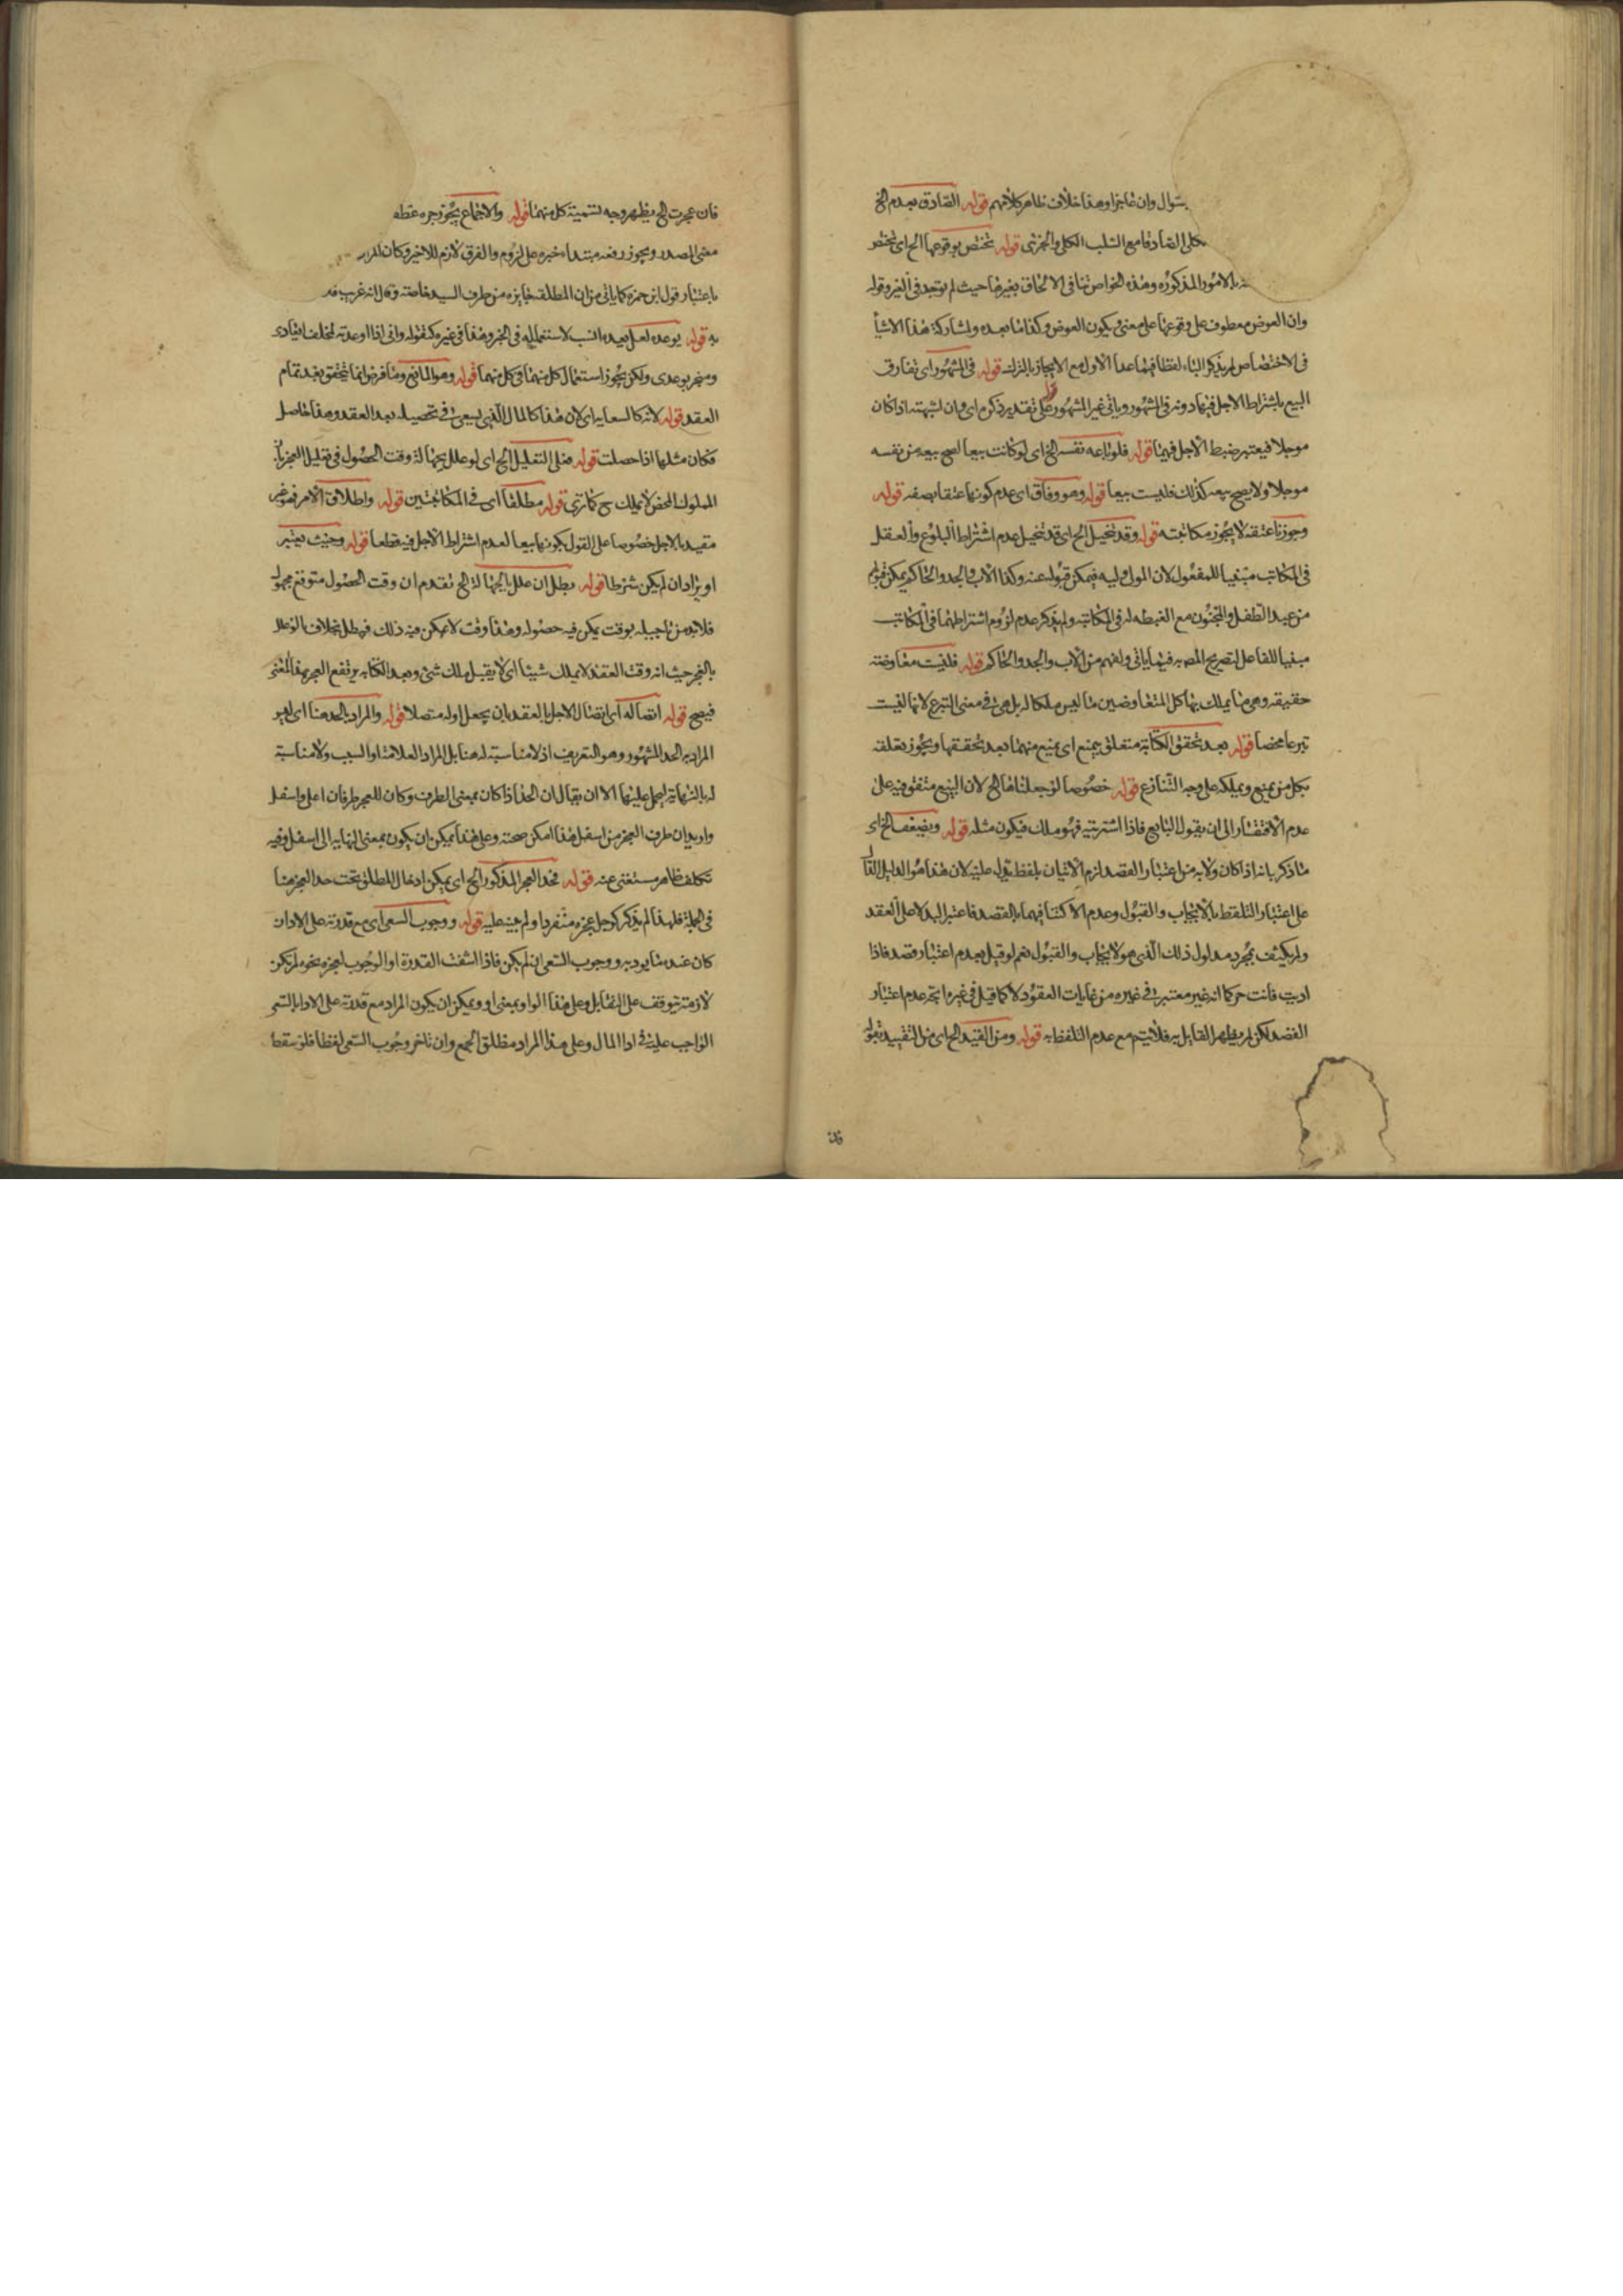 بسؤال وان عاجزا وهذا خلاف ظاهر كلامهم قوله الصادق بعدم الخ
كلى الصادقا مع السلب الكلى والجزئى قوله تختص بوقوعها الخ اى تختص
بالامور المذكوره وهذه الخواص تنافى الالحاق بغيرها حيث لم توجد فى الغير وقوله
وان العوض معطوف على وقوعها على معنى ويكون العوض وكذا ما بعده ولمشاركة هذا الاشيا
فى الاختصاص لم يذكر الباء لفظا فيما عدا الاول مع الايجاز بالترك قوله فى المشهور اى تفارق
البيع باشتراط الاجل فيها دونه فى المشهور وياتى غير المشهور قوله على تقدير ذكره اى وان لشبهته اذا كان
موجلا فيعتبر ضبط الاجل فيهما قوله فلو باعه نفسه الخ اى لو كانت بيعا لصح بيعه من نفسه
موجلا ولا يصح بيعه كذلك فليست بيعا قوله وهو وفاق اى عدم كونها عتقا بصفه قوله
وجوزنا عتقه لا يجوز مكاتبته قوله وقد تخيل الخ اى قد تخيل عدم اشتراط البلوغ والعقل
فى المكاتب مبنيا للمفعول لان المولى وليه فيمكن قبوله عنه وكذا الاب والجد والحاكم يمكن قبولهم
من عبد الطفل والمجنون مع الغبطه له فى المكاتبه ولم يذكر عدم لزوم اشتراطهما فى المكاتب
مبنيا للفاعل لتصريح المصه فيما ياتى ولفهم من الاب والجد والحاكم قوله فليست معاوضته
حقيقه وهى ما يملك بها كل المتعاوضين ما ليس ملكا له بل هى فى معنى التبرع لانها ليست
تبرعا محضا قوله بعد تحقق الكتابة متعلق بيمنع اى يمنع منهما بعد تحققها ويجوز تعلقه
بكل من يمنع ويملكه على وجه التنازع قوله خصوصا لو جعلناها الخ لان البيع متفق فيه على
عدم الافتقار الى ان يقول البايع فاذا اشتريته فهو ملك فيكون مثله قوله ويضعف الخ اى
ما ذكر بانه اذا كان ولابد من اعتبار القصد لزم الاتيان بلفظ يدل عليه لان هذا هو الدليل القا
على اعتبار التلفظ بالايجاب والقبول وعدم الاكتفا فيهما بالقصد فاعتبر ليدلا على العقد
ولم يكتف بمجرد مدلول ذلك الذى هو الايجاب والقبول نعم لو قيل بعدم اعتبار قصد فاذا
اديت فانت حر كما انه غير معتبر فى غيره من غايات العقود لا كما قيل فى غيره اتجه عدم اعتبار
القصد لكن لم يظهر القايل به فلا يتم مع عدم التلفظ به قوله ومن القيد الخ اى من التقييد بقوله
فان
فان عجزت الخ يظهر وجه تسمية كل منهما قوله والاجماع يجوز جره عطفه
معنى المصدر ويجوز رفعه مبتداء خبره على لزوم والفرق لازم للاخير وكان المراد
باعتبار قول ابن حمزه كما ياتى من ان المطلقه جايزه من طرف السيد خاصته وقال انه غريب
به قوله يوعده لعل بعيده انسب لاستعماله فى الخير وهذا فى غيره كقوله وانى اذا اوعدته لمخلف ايعادى
ومنجز موعدى ولكن يجوز استعمال كل منهما فى كل منهما قوله وهو المانع وما فرض انما يتحقق بعد تمام
العقد قوله لانه كالسعايه اى لان هذا كالمال الذى يسعى فى تحصيله بعد العقد وهذا حاصل
فكان مثلها اذا حصلت قوله فعلى التعليل الخ اى لو علل بجهالة وقت الحصول فى تعليل العجز بان
المملوك المحض لا يملك ح كما ترى قوله مطلقا اى فى المكاتبتين قوله واطلاق الامر فهو غير
مقيد بالاجل خصوصا على القول بكونها بيعا لعدم اشتراط الاجل فيه قطعا قوله وحيث يعتبر
او يزاد ان لم يكن شرطا قوله بطل ان علل بالجهالة الخ تقدم ان وقت الحصول متوقع مجهول
فلابد من تاجيله بوقت يمكن فيه حصوله وهذا وقت لا يمكن فيه ذلك فيبطل بخلاف ما لو علل
بالعجز حيث انه وقت العقد لا يملك شيئا اى لا يقبل ملك شئ وبعد الكتابه يرتفع العجز بهذا المعنى
فيصح قوله اتصاله اى اتصال الاجل بالعقد بان يجعل اوله متصلا قوله والمراد بالحد هنا اى ليس
المراد به الحد المشهور وهو التعريف اذ لا مناسبة له هنا بل المراد العلامة او السبب ولا مناسبة
له بالنهاية ليحمل عليها الا ان يقال ان الحد اذا كان بمعنى الطرف وكان للعجز طرفان اعلى واسفل
واريد ان طرف العجز من اسفل هذا امكن صحته وعلى هذا يمكن ان يكون بمعنى النهايه الى اسفل وفيه
تكلف ظاهر مستغنى عنه قوله فحد العجز المذكور الخ اى يمكن ادخال المطلق تحت حد العجز هنا
فى الجملة فلهذا لم يذكر كوجل عجزه منفردا ولم يبنه عليه قوله ووجوب السعى اى مع قدرته على الاداء ان
كان عنده ما يوديه ووجوب السعى ان لم يكن فاذا انتفت القدرة او الوجوب لعجزه بنحوه لم تكن
لازمته يتوقف على التقابل وعلى هذا الواو بمعنى او ويمكن ان يكون المراد مع قدرته على الاداء بالسعى
الواجب عليه فى ادا المال وعلى هذا المراد مطلق الجمع وان تاخر وجوب السعى لفظا فلو سقط